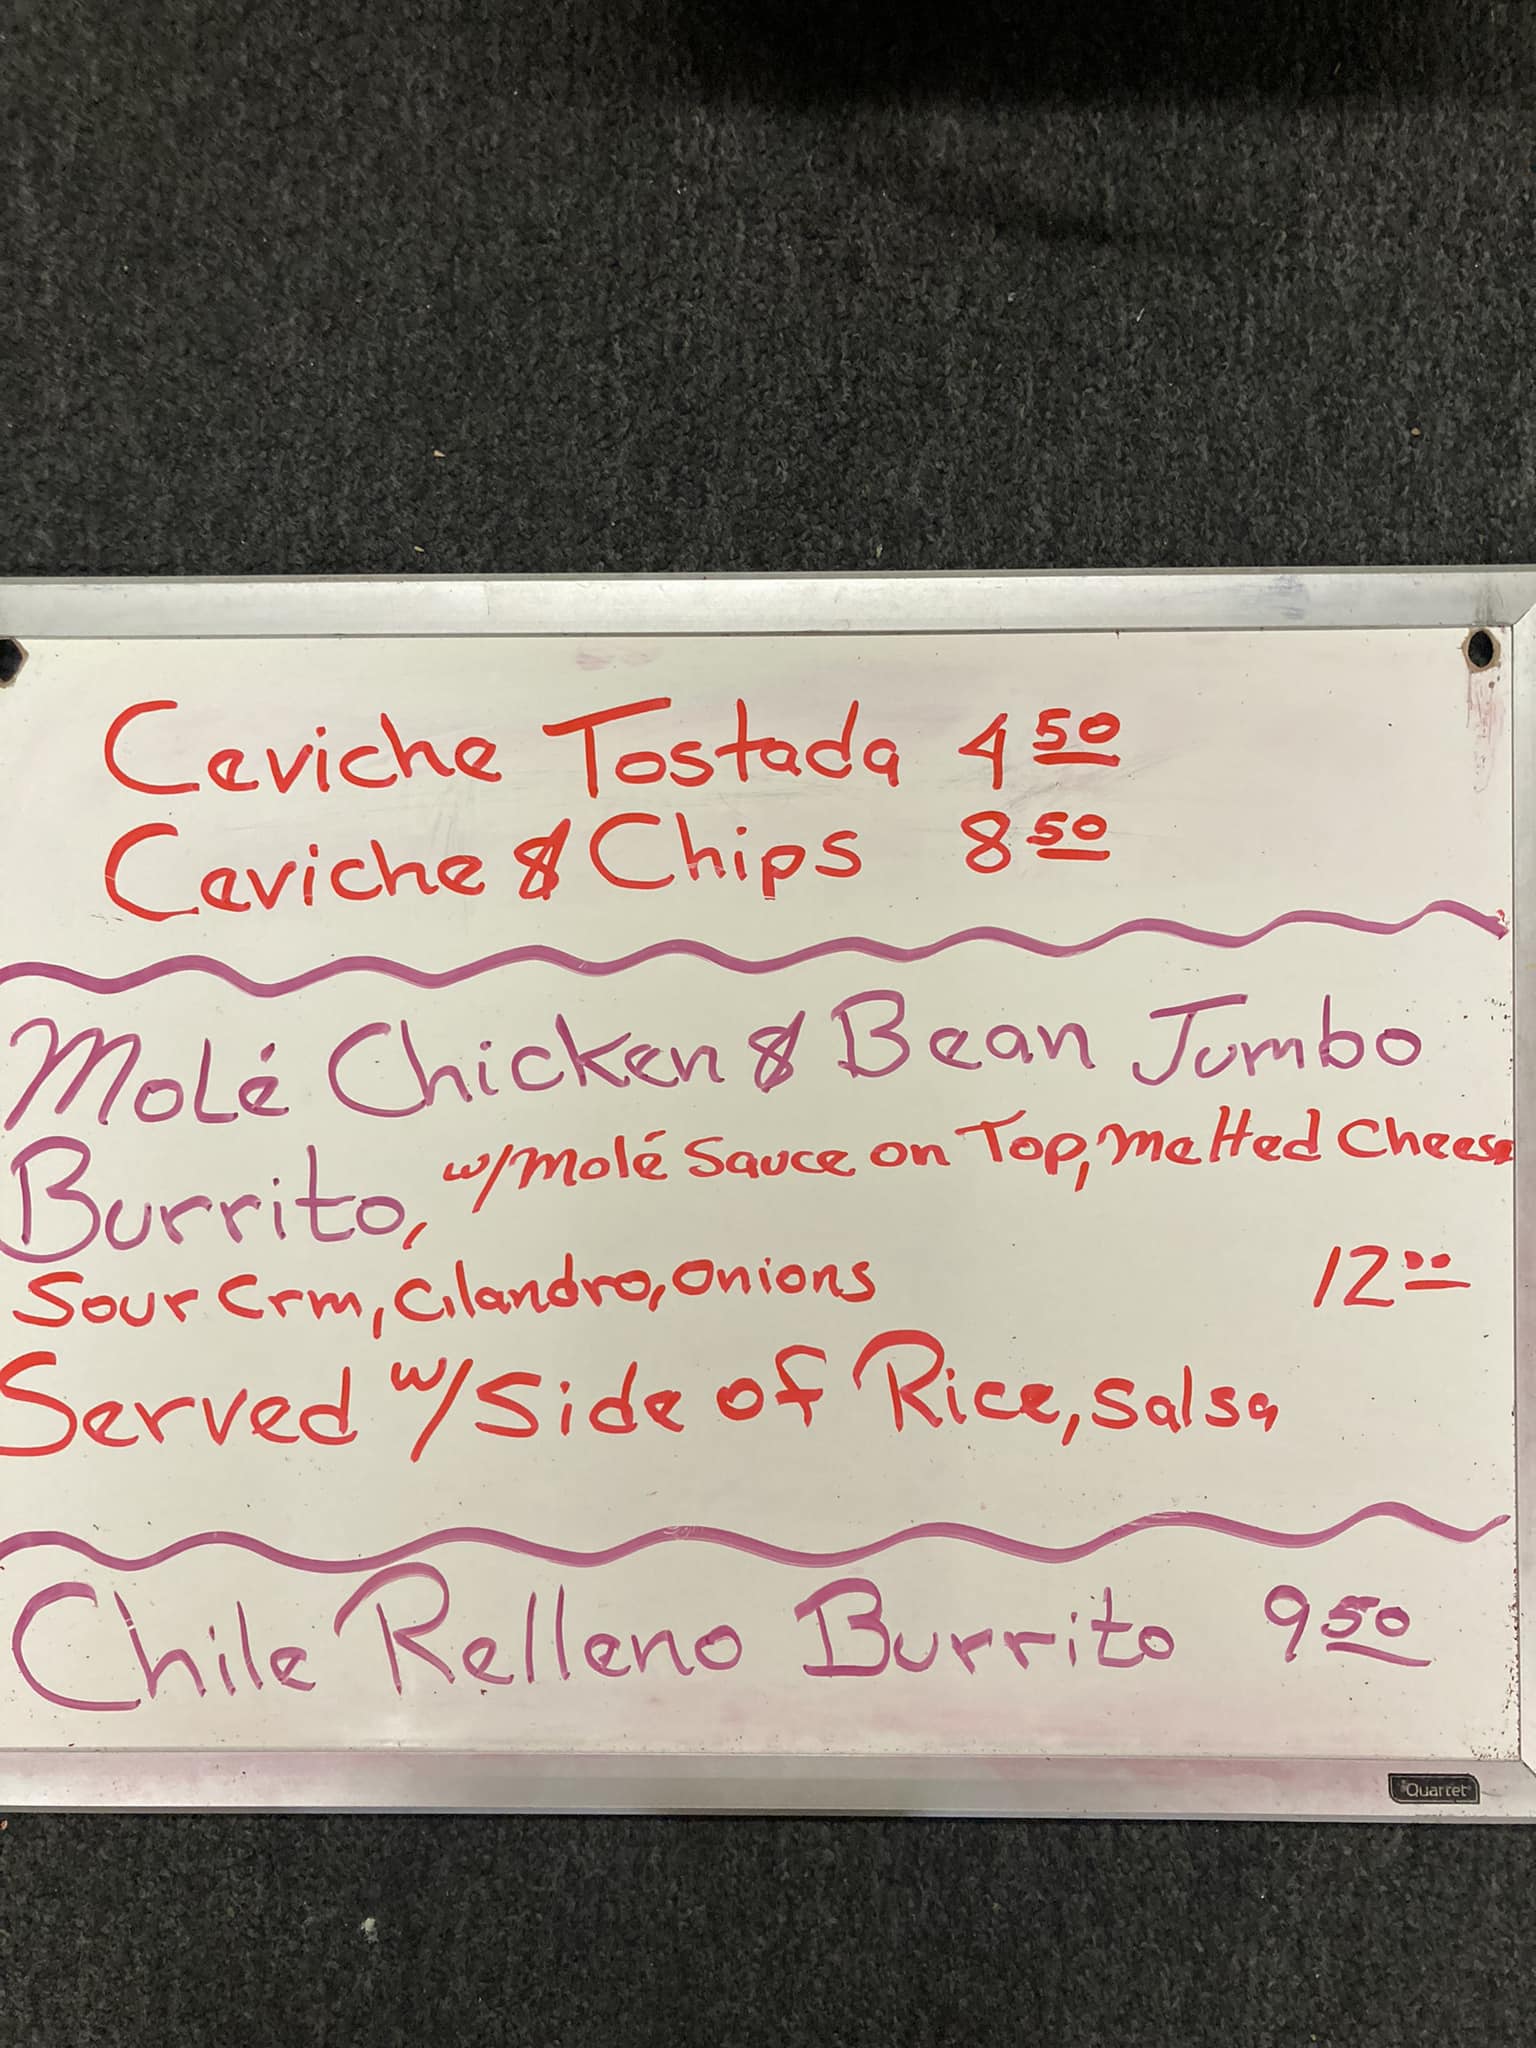 Ceviche Tostada 4 50
Ceviche & Chips 8 50
Molé Chicken & Bean Jumbo
Burrito, w/molé Sauce on Top, melted Cheese
Sour Crm, Cilandro, Onions 12 00
Served w/ Side of Rice, Salsa
Chile Relleno Burrito 9 50
Quartet